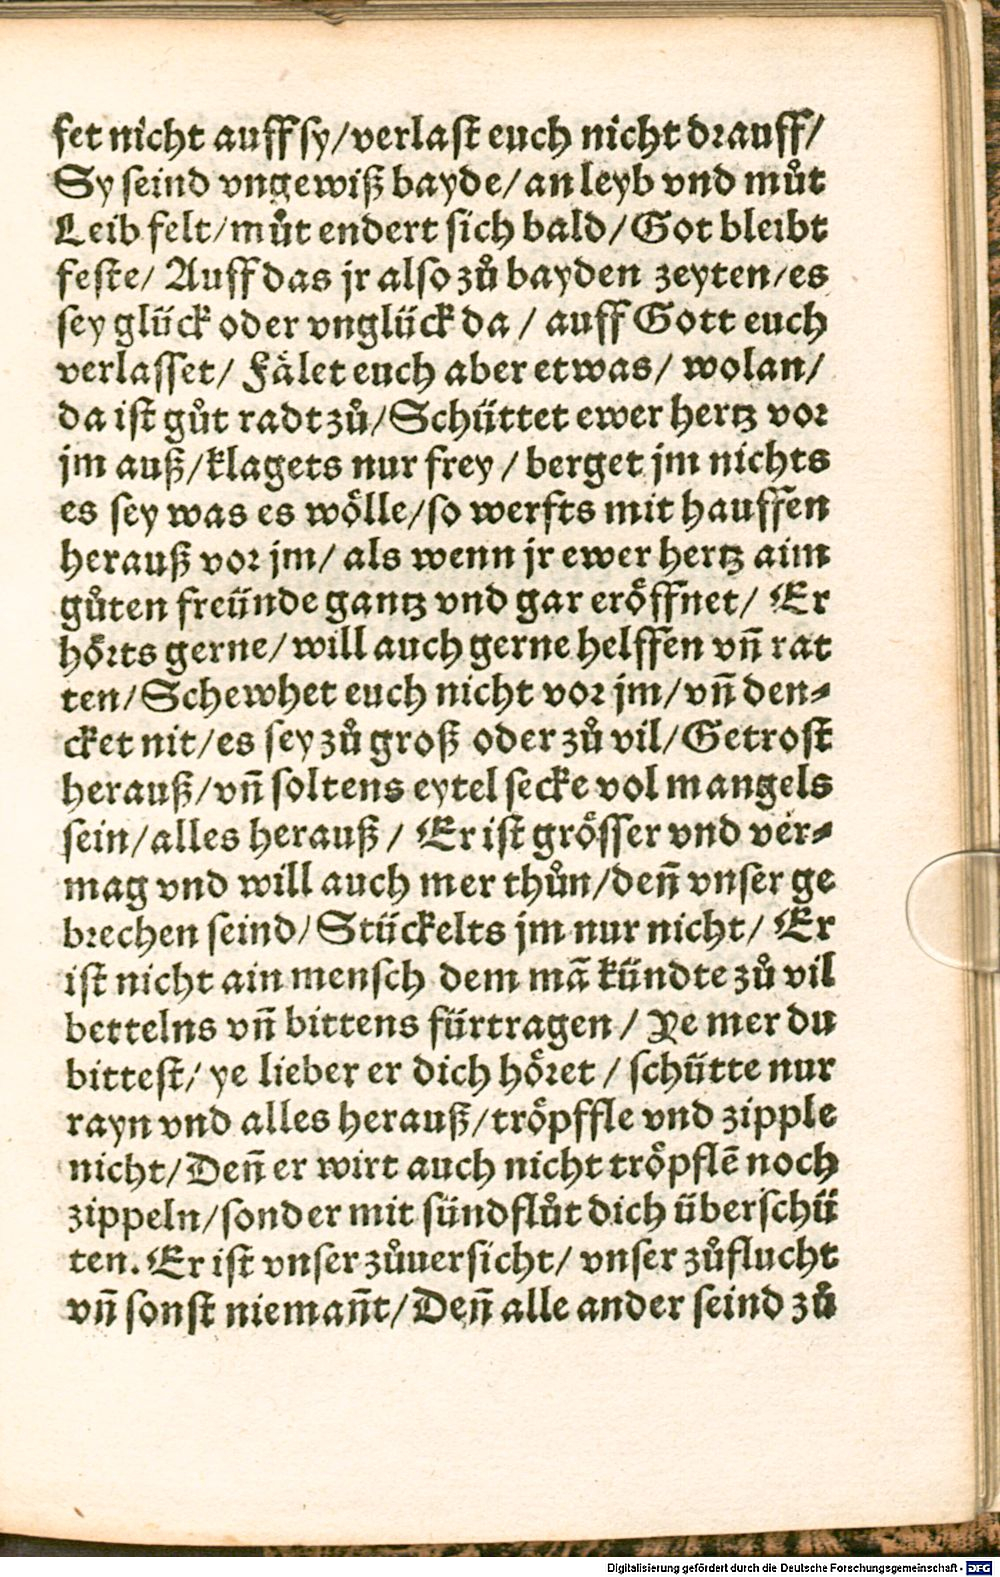 fet nicht auff sy/verlast euch nicht drauff/
Sy seind vngewiß bayde/an leyb vnd můt
Leib felt/můt endert sich bald/Got bleibt
feste/ Auff das jr also zů bayden zeyten/es
sey glück oder vnglück da / auff Gott euch
verlasset/ Fälet euch aber etwas/ wolan/
da ist gůt radt zů/Schüttet ewer hertz vor
jm auß/klagets nur frey / berget jm nichts
es sey was es wölle/so werfts mit hauffen
herauß vor jm/ als wenn jr ewer hertz aim
gůten freünde gantz vnd gar eröffnet/ Er
hörts gerne/will auch gerne helffen vñ rat
ten/Schewhet euch nicht vor jm/vñ den⸗
cket nit/es sey zů groß oder zů vil/Getrost
herauß/vñ soltens eytel secke vol mangels
sein/alles herauß / Er ist grösser vnd ver⸗
mag vnd will auch mer thůn/deñ vnser ge
brechen seind/Stückelts jm nur nicht/ Er
ist nicht ain mensch dem mã kündte zů vil
bettelns vñ bittens fürtragen / Ye mer du
bittest/ ye lieber er dich höret / schütte nur
rayn vnd alles herauß/tröpffle vnd zipple
nicht/Deñ er wirt auch nicht tröpflẽ noch
zippeln/sonder mit sündflůt dich überschü
ten. Er ist vnser zůuersicht/ vnser zůflucht
vñ sonst niemañt/Deñ alle ander seind zů
Digitalisierung gefördert durch die Deutsche Forschungsgemeinschaft - DFG